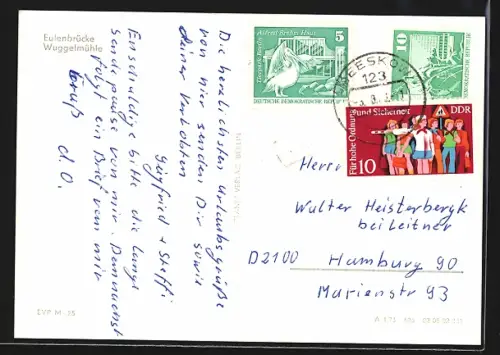 Eulenbrücke
Wuggelmühle
Die herzlichsten Urlaubsgrüße
von mir senden Dir sowie
deiner Verlobten
Siegfried + Steffi
Entschuldige bitte die lange
Sendepause von mir. Demnächst
folgt ein Brief von mir
Gruß
d. O.
Alfred Brehm Haus
Tierpark Berlin
5
DEUTSCHE DEMOKRATISCHE REPUBLIK
10
BEESKOW
123
Für hohe Ordnung und Sicherheit
DDR
10
Herrn
Walter Heisterbergk
bei Leitner
D2100 Hamburg 90
Marienstr 93